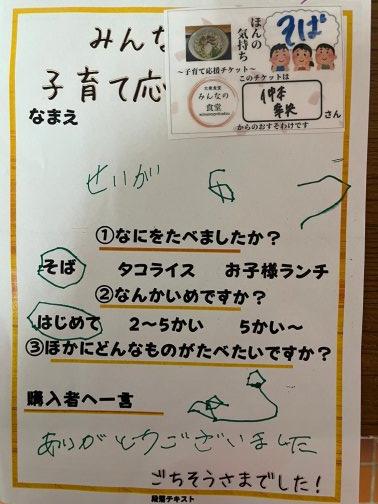 みんな
子育て応
ほんの
気持ち
そば
～子育て応援チケット～
このチケットは
大衆食堂
みんなの
食堂
仲本
さん
からのおすそわけです
なまえ
せいが 6 つ
①なにをたべましたか？
そば タコライス お子様ランチ
②なんかいめですか？
はじめて 2～5かい 5かい～
③ほかにどんなものがたべたいですか？
購入者へ一言
ありがとうございました
ごちそうさまでした！
段落テキスト